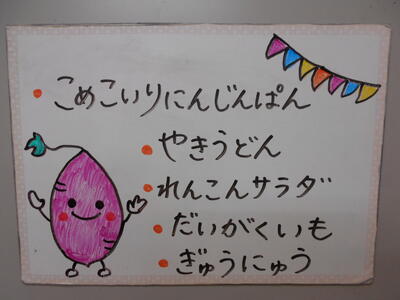 ・こめこいりにんじんぱん
・やきうどん
・れんこんサラダ
・だいがくいも
・ぎゅうにゅう